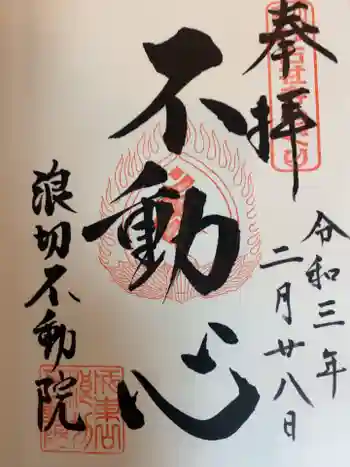 奉拝
令和三年
二月廿八日
不動心
浪切不動院